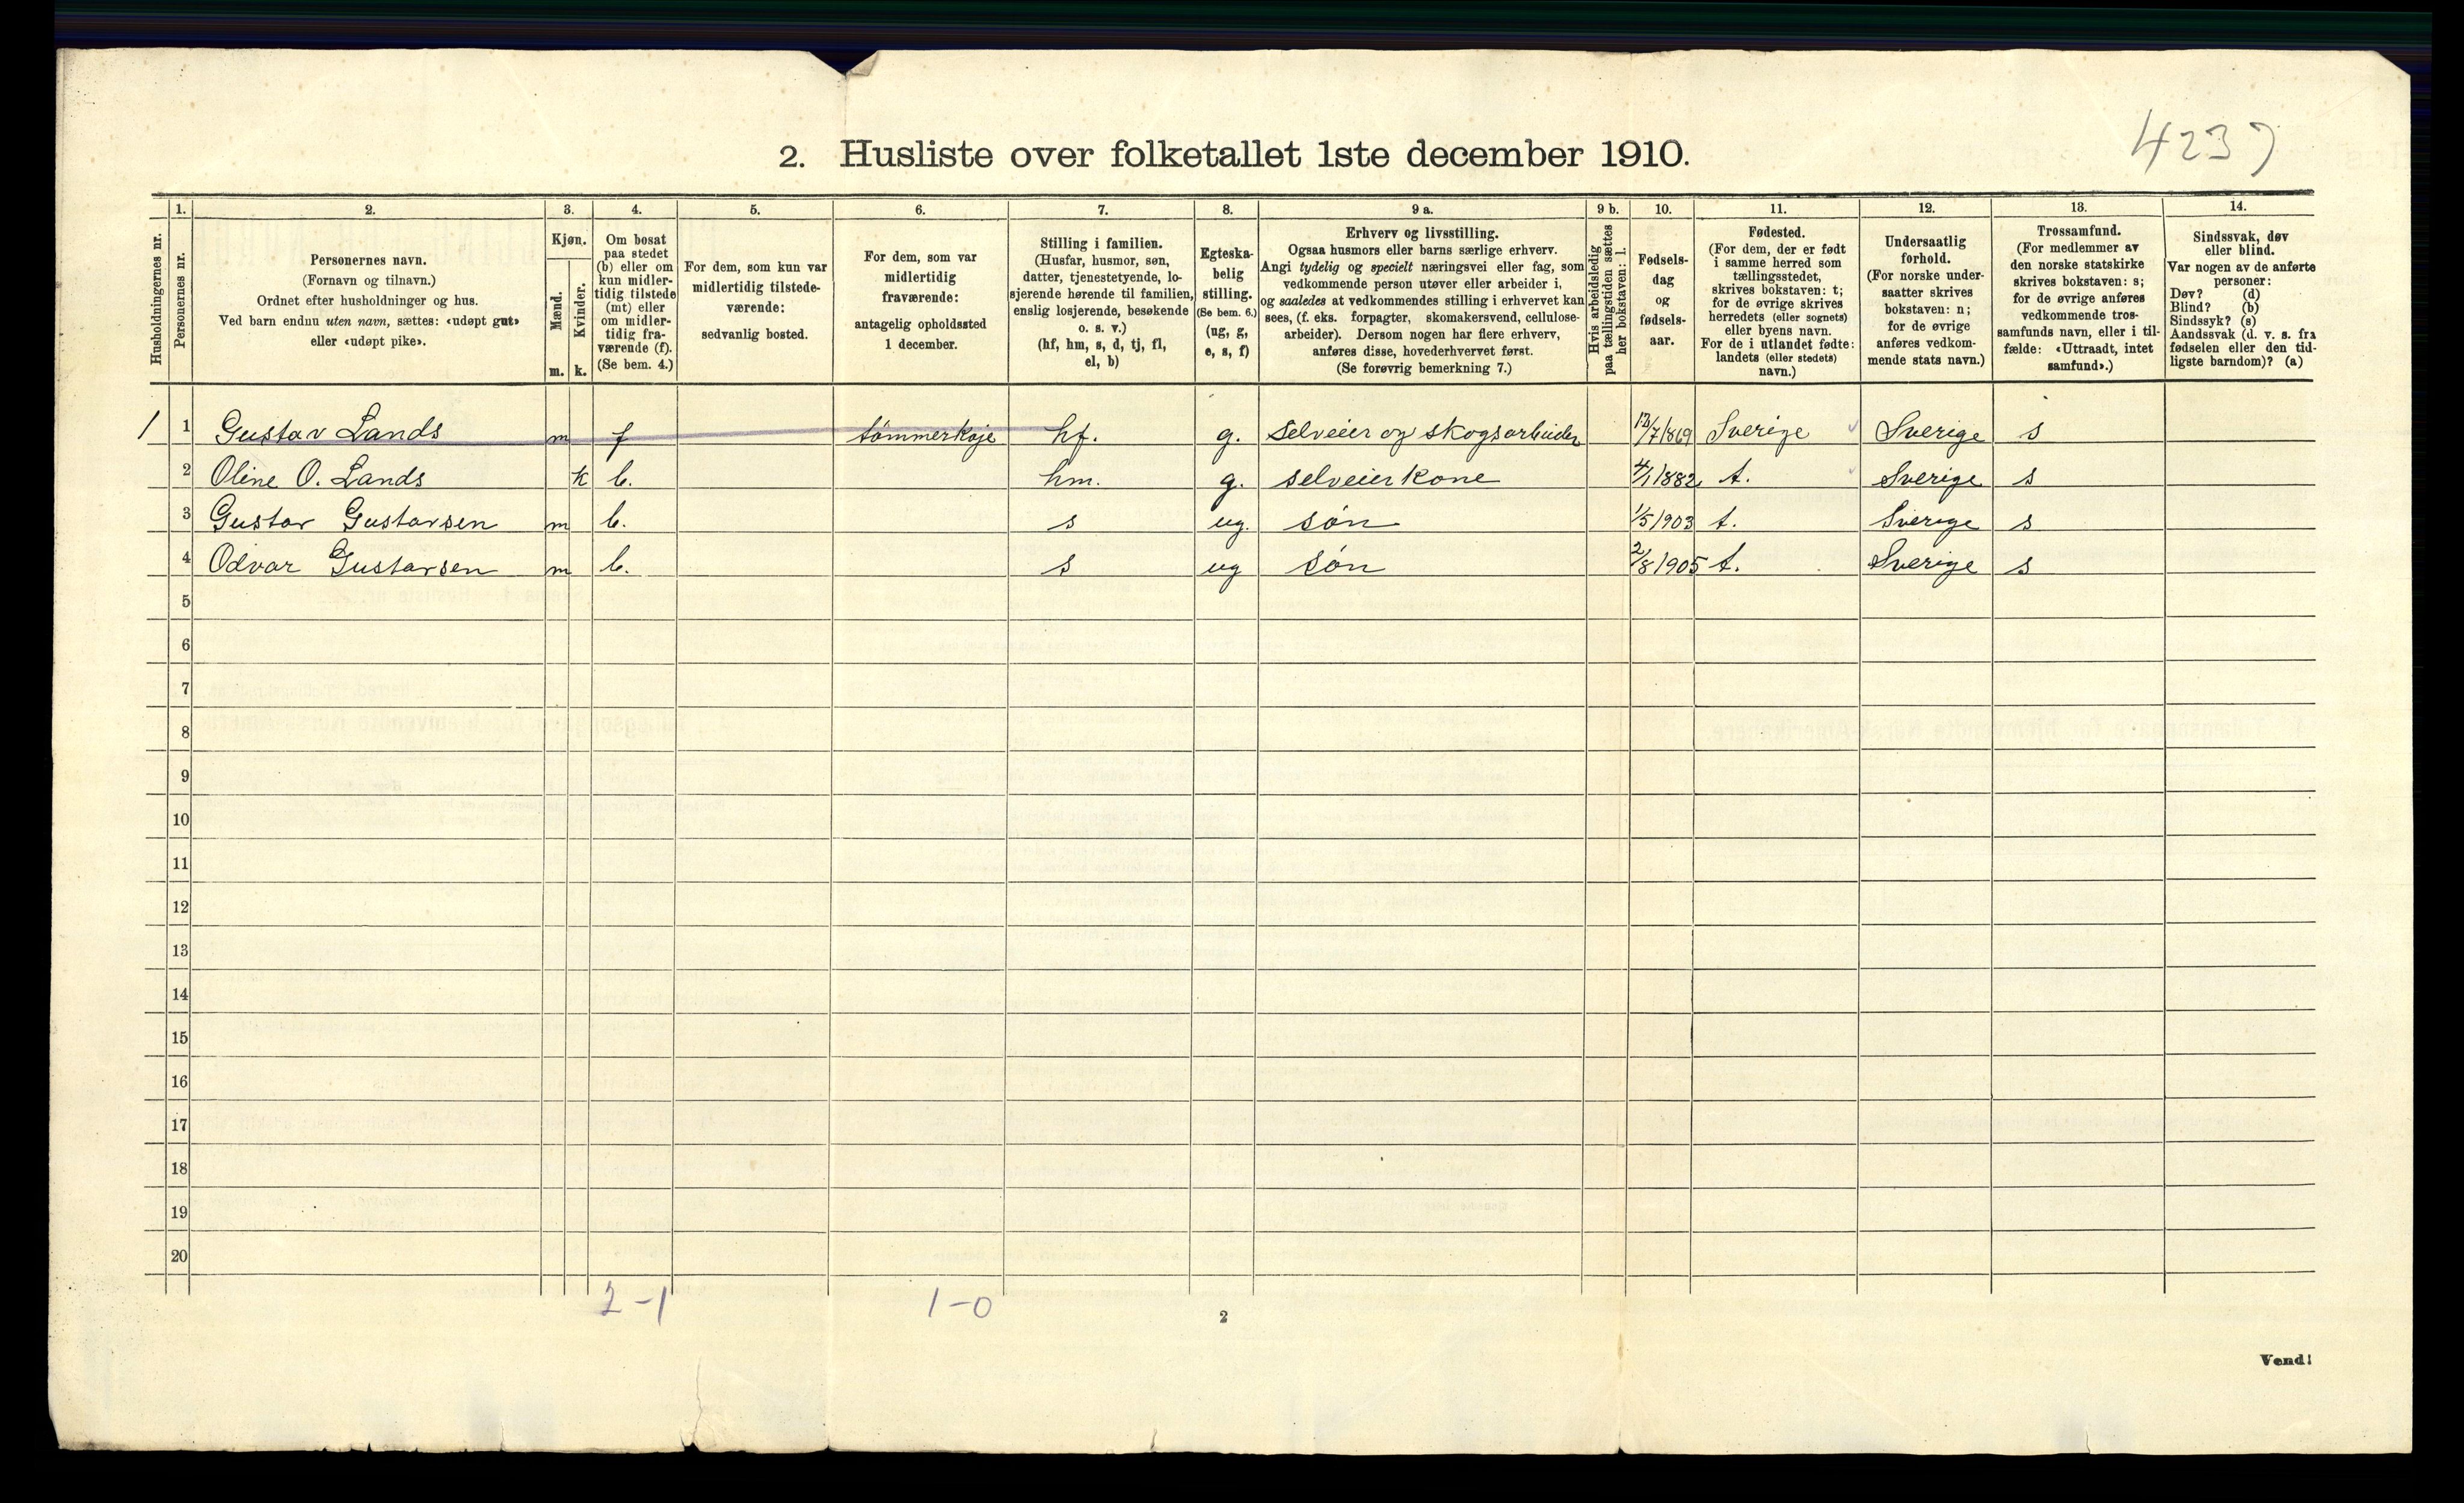 4237
2. Husliste over folketallet 1ste december 1910.
Husholdningernes nr.
1.
Personernes nr.
2.
Personernes navn.
(Fornavn og tilnavn.)
Ordnet efter husholdninger og hus.
Ved barn endnu uten navn, sættes: «udøpt gut»
eller «udøpt pike».
3.
Kjøn.
Mænd.
Kvinder.
m. k.
4.
Om bosat
paa stedet
(b) eller om
kun midler-
tidig tilstede
(mt) eller
om midler-
tidig fra-
værende (f).
(Se bem. 4.)
5.
For dem, som kun var
midlertidig tilstede-
værende:
sedvanlig bosted.
6.
For dem, som var
midlertidig
fraværende:
antagelig opholdssted
1 december.
7.
Stilling i familien.
(Husfar, husmor, søn,
datter, tjenestetyende, lo-
sjerende hørende til familien,
enslig losjerende, besøkende
o. s. v.)
(hf, hm, s, d, tj, fl,
el, b)
8.
Egteska-
belig
stilling.
(Se bem. 6.)
(ug, g,
e, s, f)
9 a.
Erhverv og livsstilling.
Ogsaa husmors eller barns særlige erhverv.
Angi tydelig og specielt næringsvei eller fag, som
vedkommende person utøver eller arbeider i,
og saaledes at vedkommendes stilling i erhvervet kan
sees, (f. eks. forpagter, skomakersvend, cellulose-
arbeider). Dersom nogen har flere erhverv,
anføres disse, hovederhvervet først.
(Se forøvrig bemerkning 7.)
9 b.
Hvis arbeidsledig
paa tællingstiden sættes
her bokstaven: l.
10.
Fødsels-
dag
og
fødsels-
aar.
11.
Fødested.
(For dem, der er født
i samme herred som
tællingsstedet,
skrives bokstaven: t;
for de øvrige skrives
herredets (eller sognets)
eller byens navn.
For de i utlandet fødte:
landets (eller stedets)
navn.)
12.
Undersaatlig
forhold.
(For norske under-
saatter skrives
bokstaven: n;
for de øvrige
anføres vedkom-
mende stats navn.)
13.
Trossamfund.
(For medlemmer av
den norske statskirke
skrives bokstaven: s;
for de øvrige anføres
vedkommende tros-
samfunds navn, eller i til-
fælde: «Uttraadt, intet
samfund».)
14.
Sindssvak, døv
eller blind.
Var nogen av de anførte
personer:
Døv? (d)
Blind? (b)
Sindssyk? (s)
Aandssvak (d. v. s. fra
fødselen eller den tid-
ligste barndom)? (a)
1 1 Gustav Lands m f tømmerkoje hf. g. Selveier og skogsarbeider 13/7 1869 Sverige Sverige s
2 Oline O. Lands k b. hm. g. selveier kone 4/1 1882 t. Sverige s
3 Gustav Gustavsen m b. s ug. søn 1/5 1903 t. Sverige s
4 Odvar Gustavsen m b. s ug søn 2/8 1905 t. Sverige s
5
6
7
8
9
10
11
12
13
14
15
16
17
18
19
20
2-1 1-0
2
Vend!